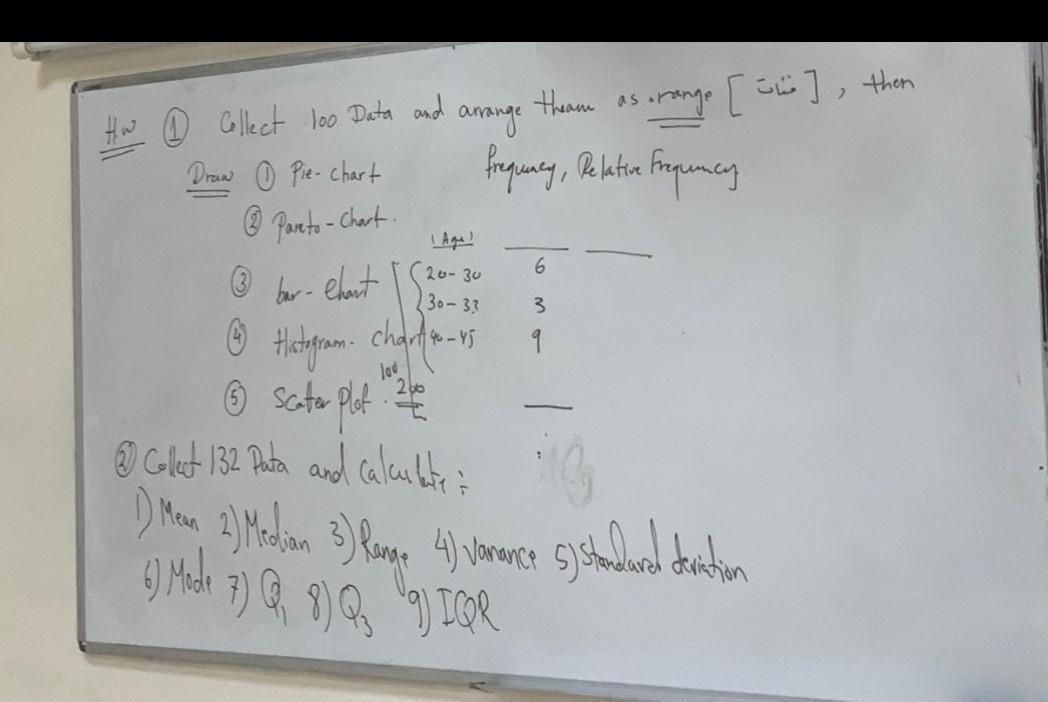 H.W ① Collect 100 Data and arrange theam as range [فئات], then
frequency, Relative Frequency
Draw ① Pie-chart
② Pareto-chart.
(Age)
③ bar-chart
20-30 6
30-33 3
④ Histogram-chart
40-45 9
⑤ Scatter plot.
100
200
② Collect 132 Data and calculate:
1) Mean 2) Median 3) Range 4) Variance 5) Standard deviation
6) Mode 7) Q₁ 8) Q₃ 9) IQR